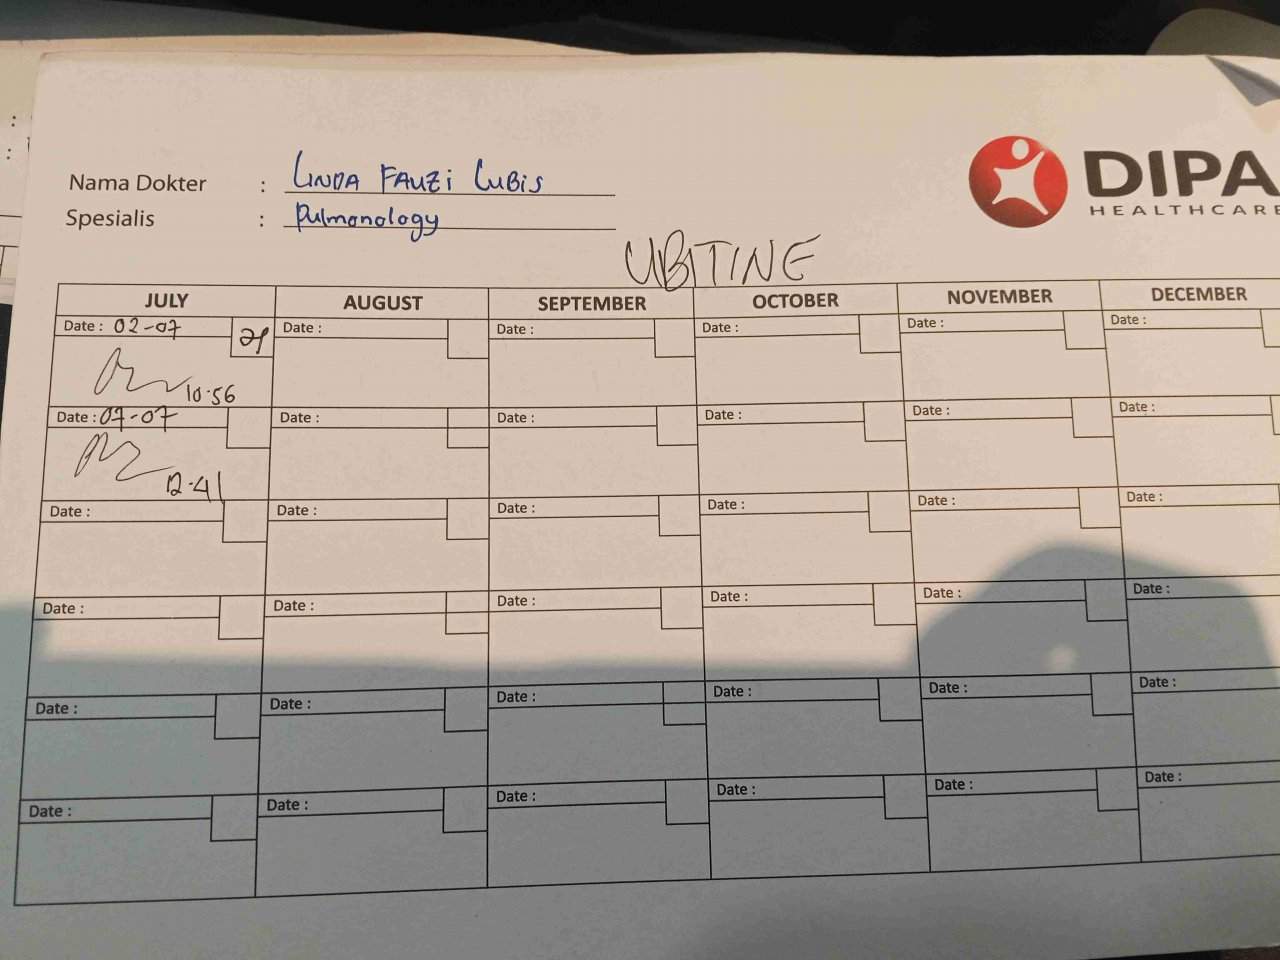 DIPA
HEALTHCARE
Nama Dokter : LINDA FAUZI LUBIS
Spesialis : Pulmonology
UBITINE
JULY AUGUST SEPTEMBER OCTOBER NOVEMBER DECEMBER
Date : 02-07 Date : Date : Date : Date : Date :
10.56
Date : 07-07 Date : Date : Date : Date : Date :
12.41
Date : Date : Date : Date : Date : Date :
Date : Date : Date : Date : Date : Date :
Date : Date : Date : Date : Date : Date :
Date : Date : Date : Date : Date : Date :